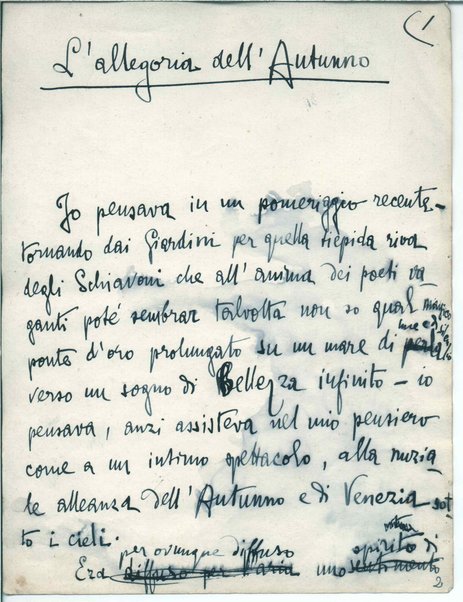 (1
L'allegoria dell'Autunno
Io pensava in un pomeriggio recente –
tornando dai Giardini per quella tiepida riva
degli Schiavoni che all'anima dei poeti va
ganti poté sembrar talvolta non so qual magico
ponte d'oro prolungato su un mare di perla luce e di silenzio
verso un sogno di Bellezza infinito – io
pensava, anzi assisteva nel mio pensiero
come a un intimo spettacolo, alla nuzia
le alleanza dell'Autunno e di Venezia sot
to i cieli.
per ovunque diffuso spirito di
Era diffuso per l'aria uno sentimento
2